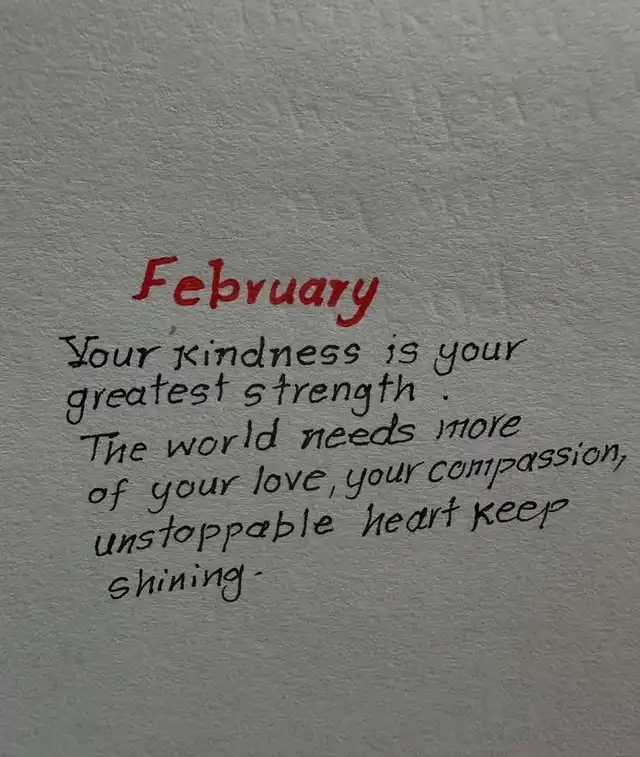 February
Your kindness is your
greatest strength.
The world needs more
of your love, your compassion,
unstoppable heart keep
shining.